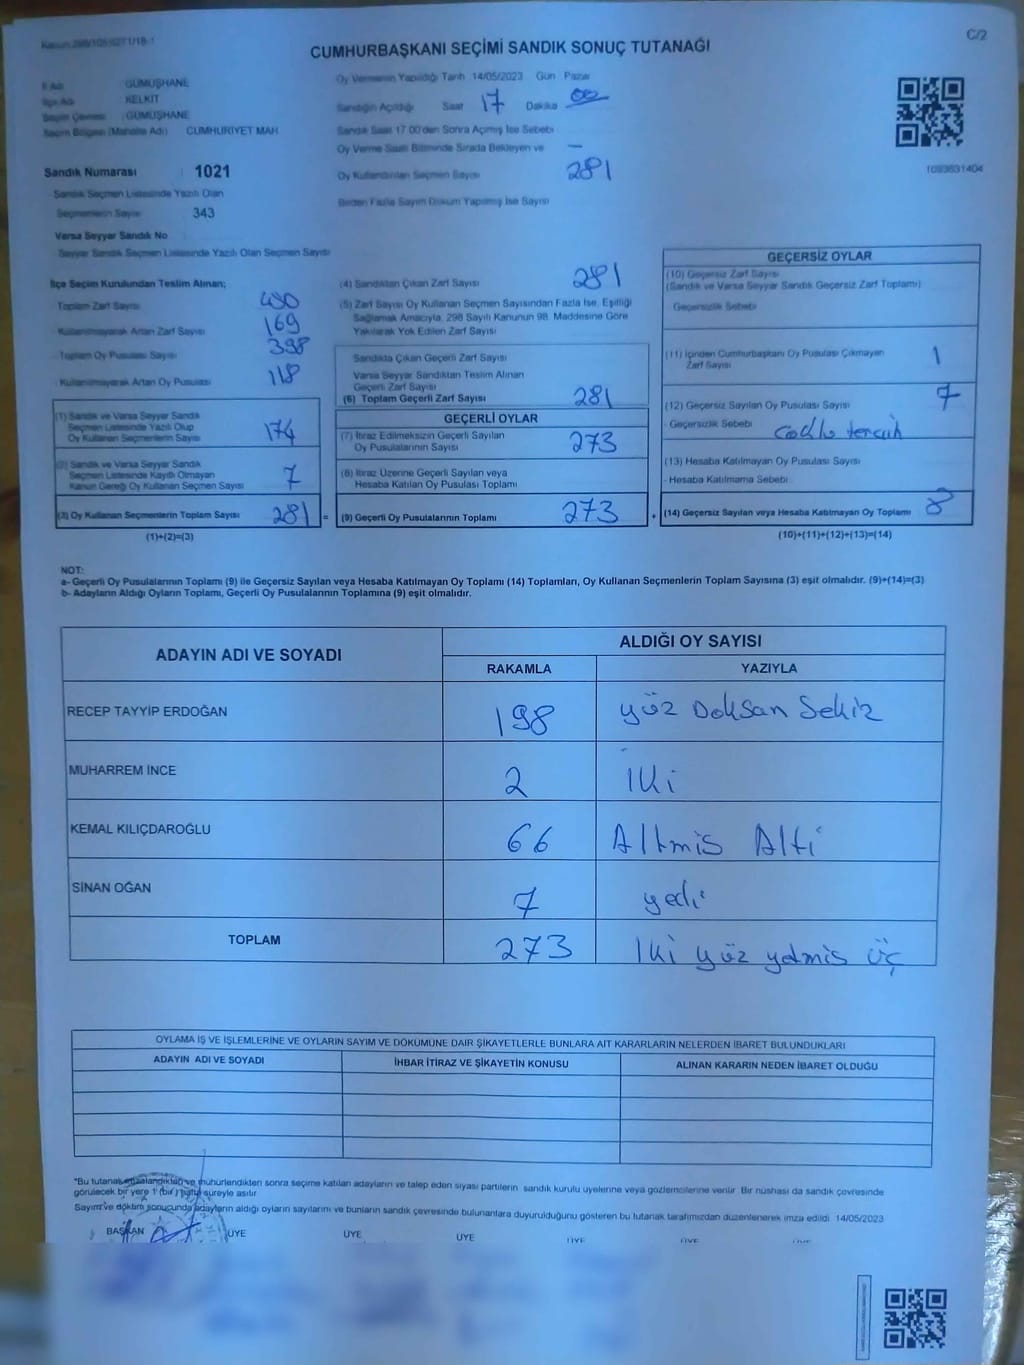 C/2
CUMHURBAŞKANI SEÇİMİ SANDIK SONUÇ TUTANAĞI
İl Adı : GÜMÜŞHANE
İlçe Adı : KELKİT
Seçim Çevresi : GÜMÜŞHANE
Seçim Bölgesi (Mahalle Adı) CUMHURİYET MAH
Sandık Numarası : 1021
Sandık Seçmen Listesinde Yazılı Olan
Seçmenlerin Sayısı 343
Varsa Seyyar Sandık No
Seyyar Sandık Seçmen Listesinde Yazılı Olan Seçmen Sayısı
Oy Vermenin Yapıldığı Tarih 14/05/2023 Gün Pazar
Sandığın Açıldığı Saat 17 Dakika 00
Sandık Saat 17.00'den Sonra Açılmış İse Sebebi
Oy Verme Saati Bitiminde Sırada Bekleyen ve —
Oy Kullandırılan Seçmen Sayısı 281
Birden Fazla Sayım Döküm Yapılmış İse Sayısı
1093631404
İlçe Seçim Kurulundan Teslim Alınan;
Toplam Zarf Sayısı 450
Kullanılmayarak Artan Zarf Sayısı 169
Toplam Oy Pusulası Sayısı 398
Kullanılmayarak Artan Oy Pusulası 118
(1) Sandık ve Varsa Seyyar Sandık
Seçmen Listesinde Yazılı Olup
Oy Kullanan Seçmenlerin Sayısı 174
(2) Sandık ve Varsa Seyyar Sandık
Seçmen Listesinde Kayıtlı Olmayan
Kanun Gereği Oy Kullanan Seçmen Sayısı 7
(3) Oy Kullanan Seçmenlerin Toplam Sayısı 281 =
(1)+(2)=(3)
(4) Sandıktan Çıkan Zarf Sayısı 281
(5) Zarf Sayısı Oy Kullanan Seçmen Sayısından Fazla İse, Eşitliği
Sağlamak Amacıyla, 298 Sayılı Kanunun 98. Maddesine Göre
Yakılarak Yok Edilen Zarf Sayısı
Sandıkta Çıkan Geçerli Zarf Sayısı
Varsa Seyyar Sandıktan Teslim Alınan
Geçerli Zarf Sayısı
(6) Toplam Geçerli Zarf Sayısı 281
GEÇERLİ OYLAR
(7) İtiraz Edilmeksizin Geçerli Sayılan
Oy Pusulalarının Sayısı 273
(8) İtiraz Üzerine Geçerli Sayılan veya
Hesaba Katılan Oy Pusulası Toplamı
(9) Geçerli Oy Pusulalarının Toplamı 273 +
GEÇERSİZ OYLAR
(10) Geçersiz Zarf Sayısı
(Sandık ve Varsa Seyyar Sandık Geçersiz Zarf Toplamı)
- Geçersizlik Sebebi
(11) İçinden Cumhurbaşkanı Oy Pusulası Çıkmayan
Zarf Sayısı 1
(12) Geçersiz Sayılan Oy Pusulası Sayısı 7
- Geçersizlik Sebebi Coklu tercih
(13) Hesaba Katılmayan Oy Pusulası Sayısı
- Hesaba Katılmama Sebebi
(14) Geçersiz Sayılan veya Hesaba Katılmayan Oy Toplamı 8
(10)+(11)+(12)+(13)=(14)
NOT:
a- Geçerli Oy Pusulalarının Toplamı (9) ile Geçersiz Sayılan veya Hesaba Katılmayan Oy Toplamı (14) Toplamları, Oy Kullanan Seçmenlerin Toplam Sayısına (3) eşit olmalıdır. (9)+(14)=(3)
b- Adayların Aldığı Oyların Toplamı, Geçerli Oy Pusulalarının Toplamına (9) eşit olmalıdır.
ADAYIN ADI VE SOYADI ALDIĞI OY SAYISI
RAKAMLA YAZIYLA
RECEP TAYYİP ERDOĞAN 198 yüz Doksan Sekiz
MUHARREM İNCE 2 İki
KEMAL KILIÇDAROĞLU 66 Altmis Alti
SİNAN OĞAN 7 yedi
TOPLAM 273 İki yüz yetmis üç
OYLAMA İŞ VE İŞLEMLERİNE VE OYLARIN SAYIM VE DÖKÜMÜNE DAİR ŞİKAYETLERLE BUNLARA AİT KARARLARIN NELERDEN İBARET BULUNDUKLARI
ADAYIN ADI VE SOYADI İHBAR İTİRAZ VE ŞİKAYETİN KONUSU ALINAN KARARIN NEDEN İBARET OLDUĞU
*Bu tutanak imzalandıktan ve mühürlendikten sonra seçime katılan adayların ve talep eden siyasi partilerin sandık kurulu üyelerine veya gözlemcilerine verilir. Bir nüshası da sandık çevresinde
görülecek bir yere 1 (bir) hafta süreyle asılır
Sayım ve döküm sonucunda adayların aldığı oyların sayılarını ve bunların sandık çevresinde bulunanlara duyurulduğunu gösteren bu tutanak tarafımızdan düzenlenerek imza edildi. 14/05/2023
BAŞKAN ÜYE ÜYE ÜYE ÜYE ÜYE ÜYE